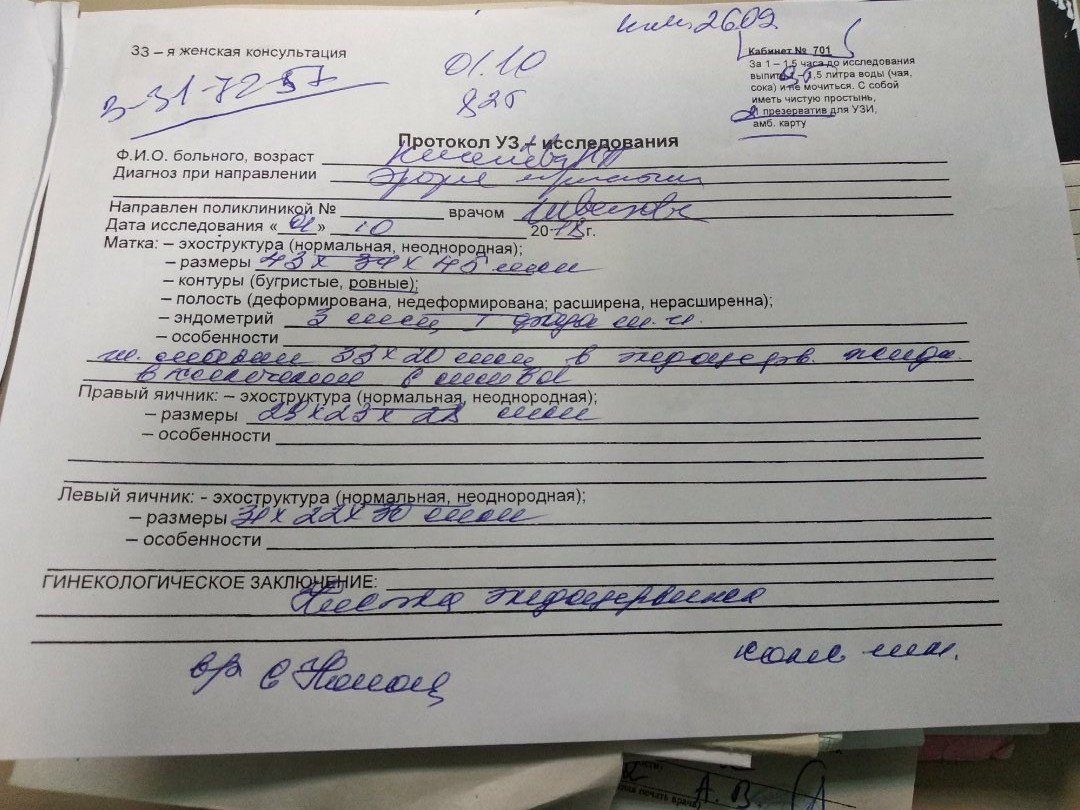 2609
33 – я женская консультация
01.10
Кабинет № 701
За 1 – 1,5 часа до исследования
выпить 1 – 1,5 литра воды (чая,
3-31-72-57
825
сока) и не мочиться. С собой
иметь чистую простынь,
презерватив для УЗИ,
амб. карту
Протокол УЗ – исследования
Ф.И.О. больного, возраст
Диагноз при направлении
Направлен поликлиникой № врачом
Дата исследования «01» 10 2018 г.
Матка: – эхоструктура (нормальная, неоднородная);
– размеры 43 х 34 х 45 мм
– контуры (бугристые, ровные);
– полость (деформирована, недеформирована; расширена, нерасширенна);
– эндометрий 3 мм, 1 фаза м.ц.
– особенности
ш. матки 33 х 20 мм в эндоцерв.
включения 6 мм
Правый яичник: – эхоструктура (нормальная, неоднородная);
– размеры х 23 х мм
– особенности
Левый яичник: - эхоструктура (нормальная, неоднородная);
– размеры х 22 х 30 мм
– особенности
ГИНЕКОЛОГИЧЕСКОЕ ЗАКЛЮЧЕНИЕ:
Киста эндоцервикса